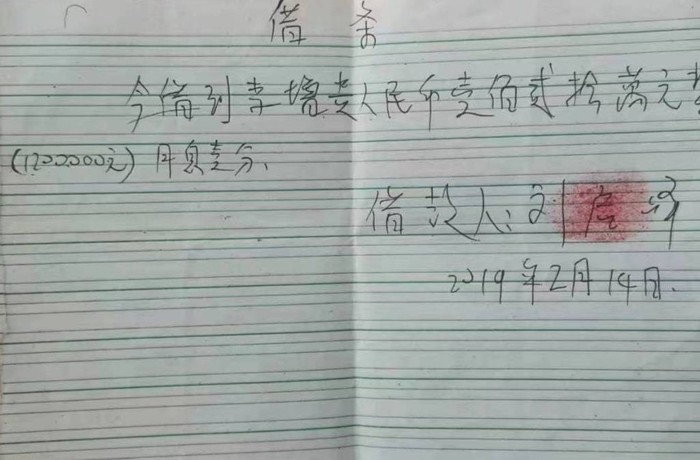 借条
今借到李增 人民币壹佰贰拾萬元
(1200000元) 月息壹分、
借款人:刘
2019年2月14日.